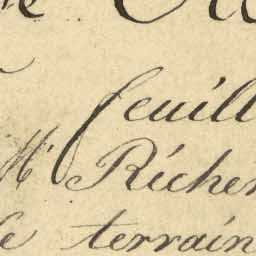 feuill
Mr Richer
le terrain